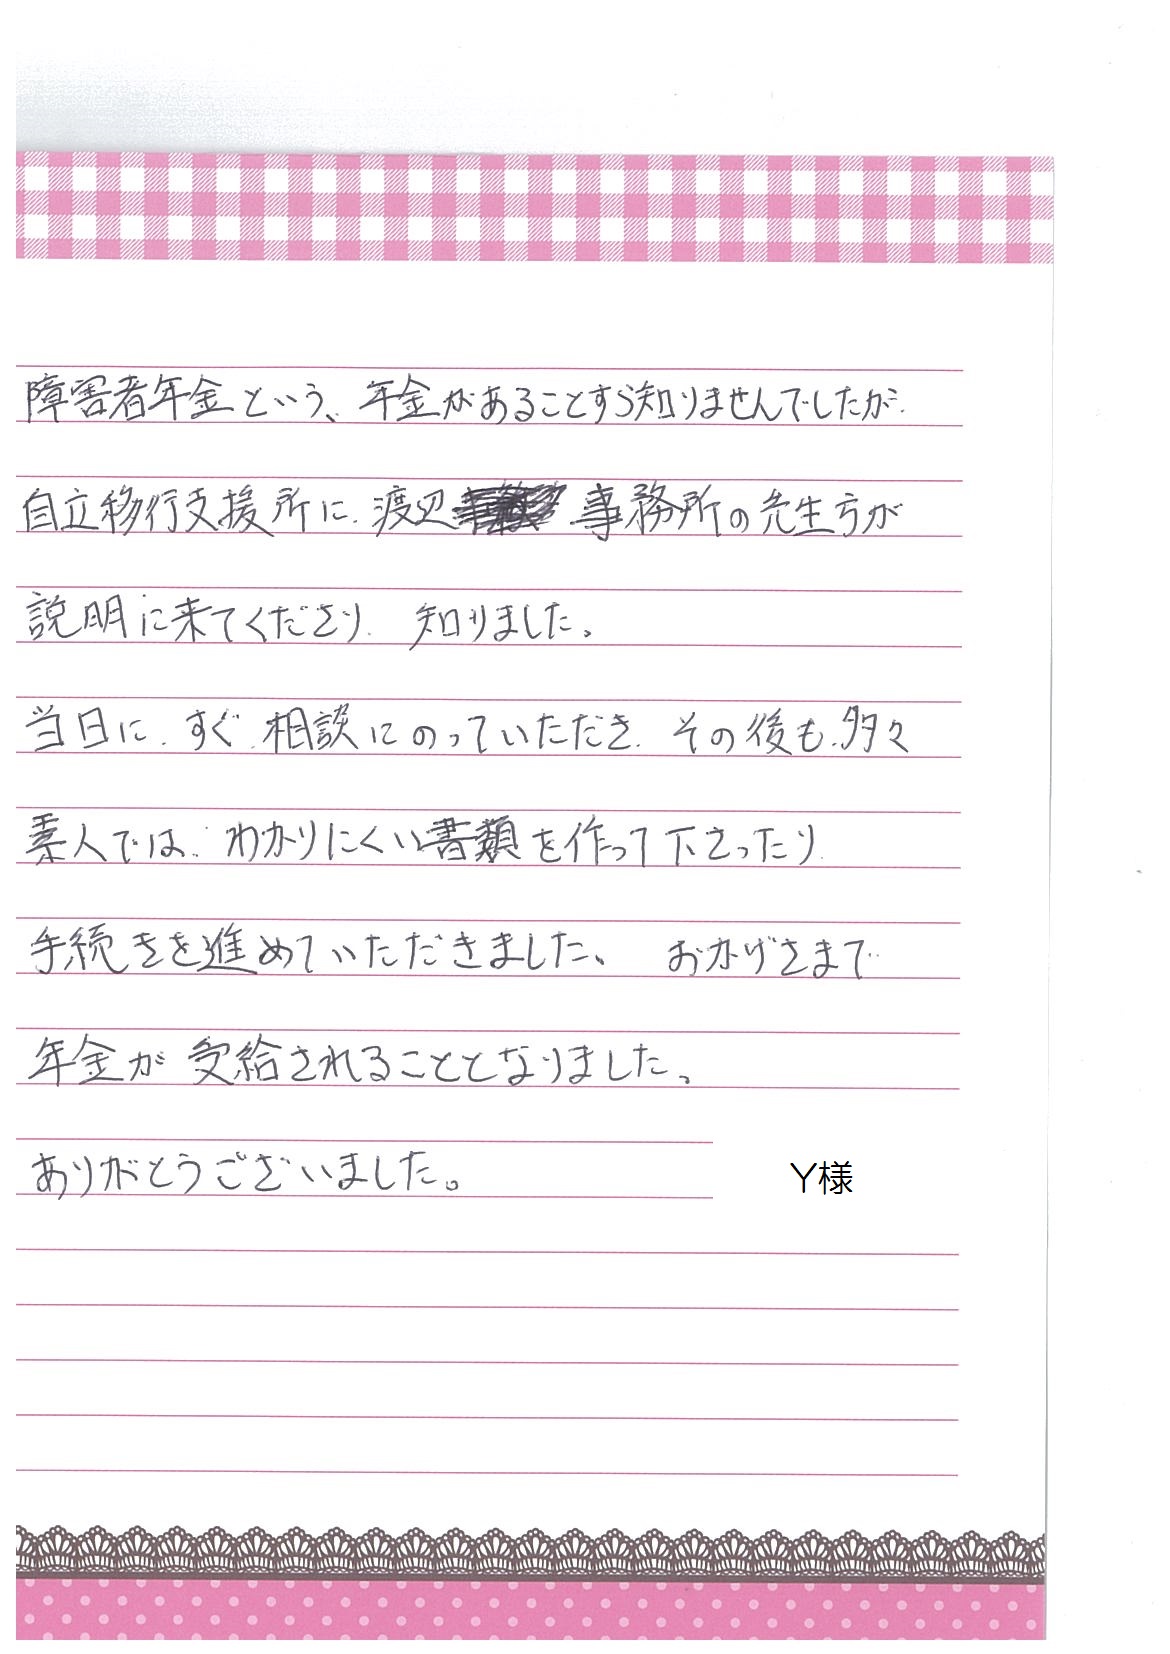 障害者年金という、年金があることすら知りませんでしたが、
自立移行支援所に、渡辺事務所の先生方が
説明に来てくださり、知りました。
当日に、すぐ、相談にのっていただき、その後も、多々
素人では、わかりにくい書類を作って下さったり、
手続きを進めていただきました、おかげさまで
年金が受給されることとなりました、
ありがとうございました。
Y様